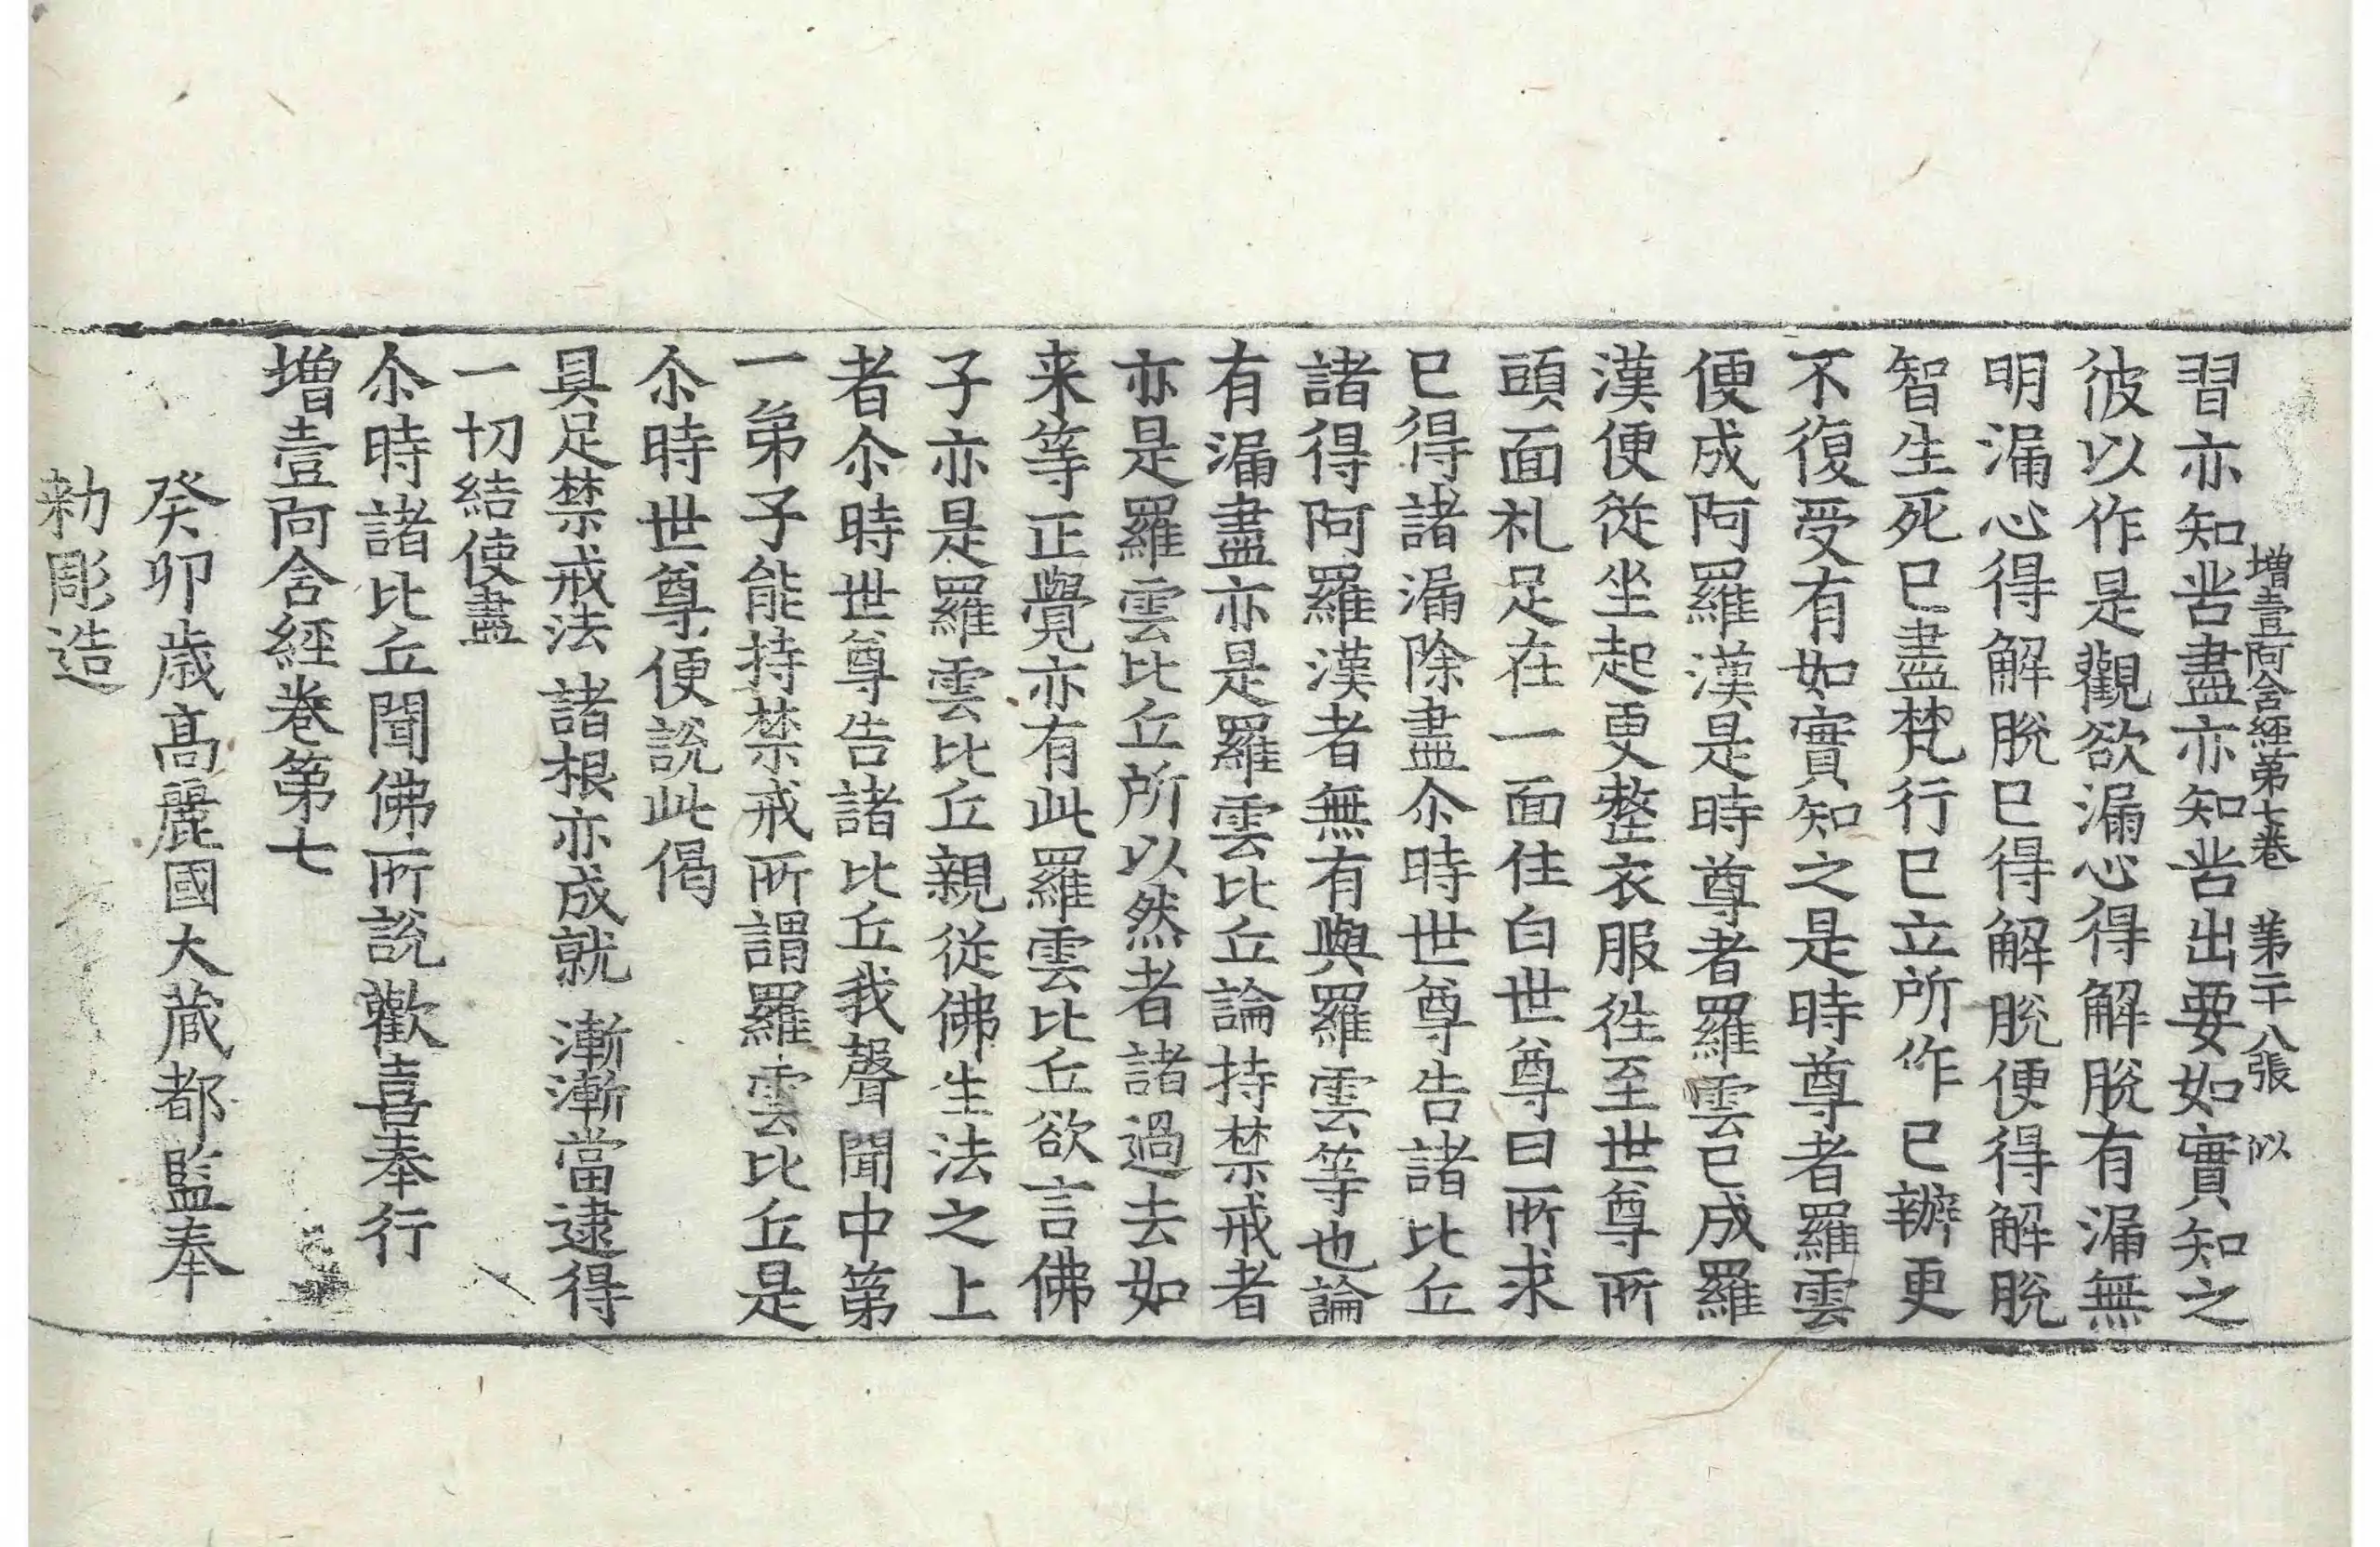 增壹阿含經第七卷 第二十八張 似
習亦知苦盡亦知苦出要如實知之
彼以作是觀欲漏心得解脫有漏無
明漏心得解脫已得解脫便得解脫
智生死已盡梵行已立所作已辦更
不復受有如實知之是時尊者羅雲
便成阿羅漢是時尊者羅雲已成羅
漢便從坐起更整衣服徃至世尊所
頭面礼足在一面住白世尊曰所求
已得諸漏除盡尒時世尊告諸比丘
諸得阿羅漢者無有與羅雲等也論
有漏盡亦是羅雲比丘論持禁戒者
亦是羅雲比丘所以然者諸過去如
来等正覺亦有此羅雲比丘欲言佛
子亦是羅雲比丘親從佛生法之上
者尒時世尊告諸比丘我聲聞中第
一弟子能持禁戒所謂羅雲比丘是
尒時世尊便說此偈
具足禁戒法 諸根亦成就 漸漸當逮得
一切結使盡
尒時諸比丘聞佛所說歡喜奉行
增壹阿含經卷第七
癸卯歳髙麗國大藏都監奉
勑彫造